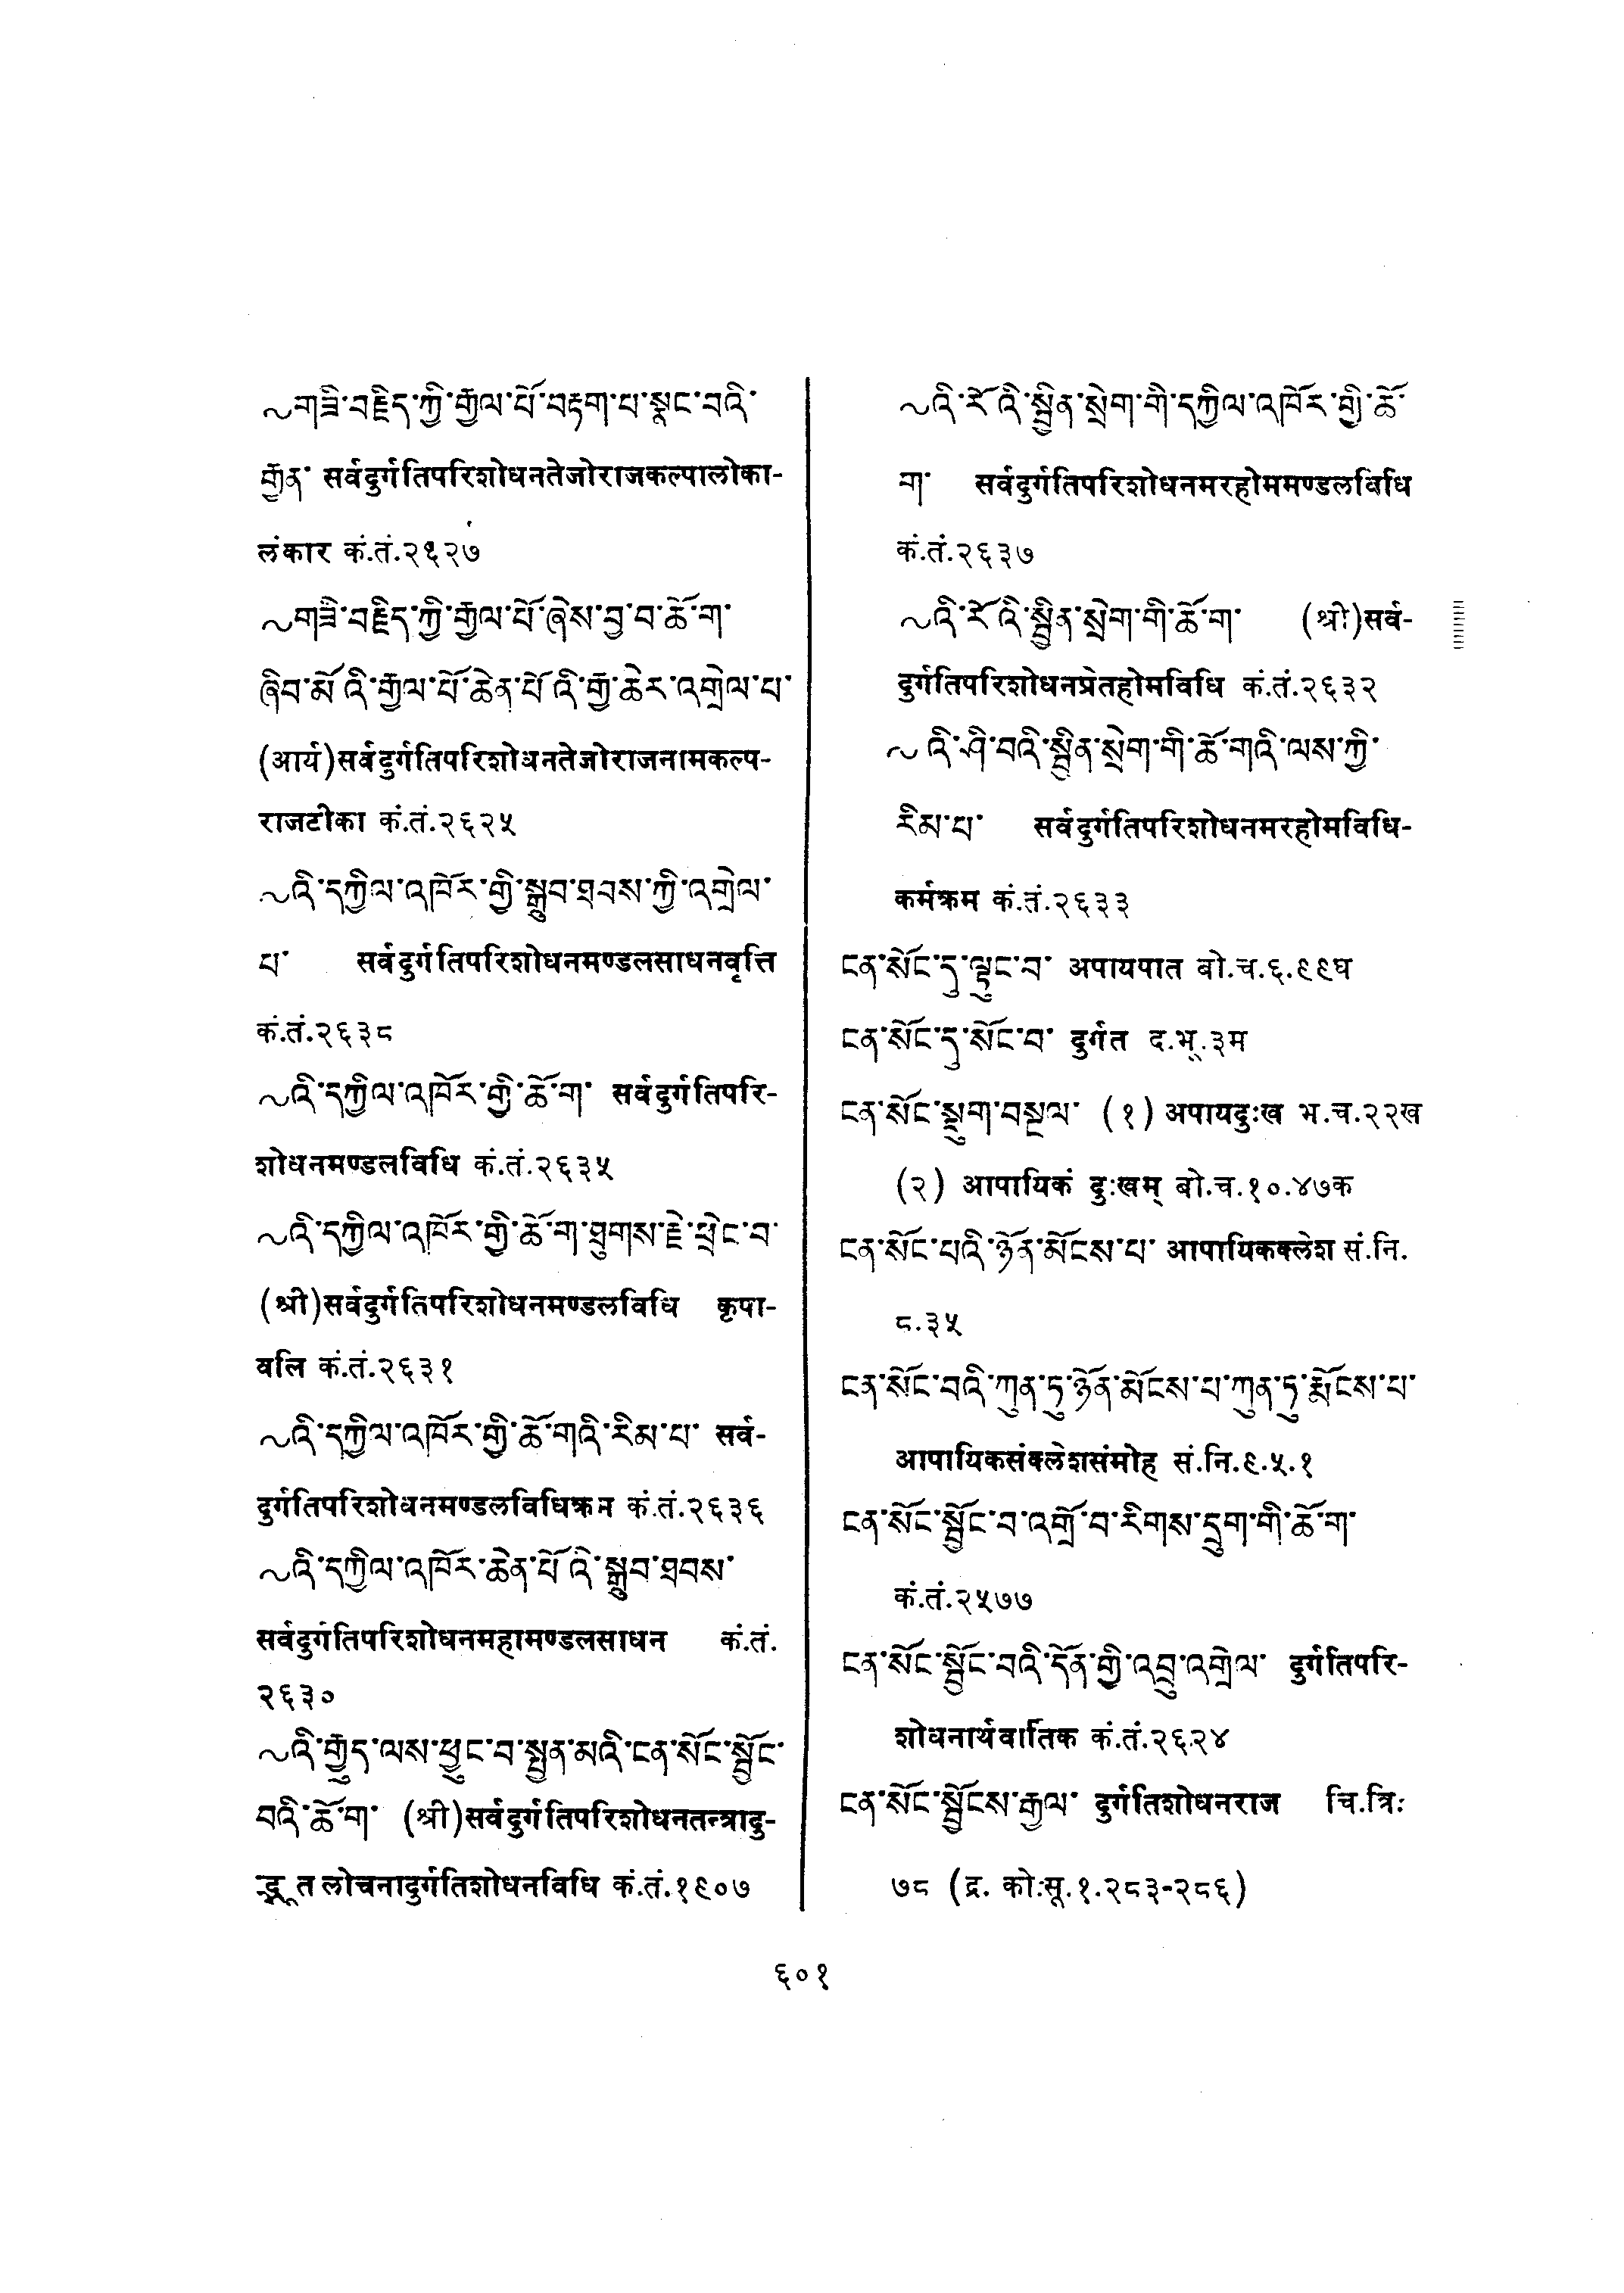 ~གཟི་བརྗིད་ཀྱི་རྒྱལ་པོ་བརྟག་པ་སྣང་བའི་
རྒྱན་ सर्वदुर्गतिपरिशोधनतेजोराजकल्पालोका-
लंकार कं.तं.२६२७
~གཟི་བརྗིད་ཀྱི་རྒྱལ་པོ་ཞེས་བྱ་བ་ཆོ་ག་
ཞིབ་མོའི་རྒྱལ་པོ་ཆེན་པོའི་རྒྱ་ཆེར་འགྲེལ་པ་
(आर्य)सर्वदुर्गतिपरिशोधनतेजोराजनामकल्प-
राजटीका कं.तं.२६२५
~འི་དཀྱིལ་འཁོར་གྱི་སྒྲུབ་ཐབས་ཀྱི་འགྲེལ་
པ་ सर्वदुर्गतिपरिशोधनमण्डलसाधनवृत्ति
कं.तं.२६३८
~འི་དཀྱིལ་འཁོར་གྱི་ཆོ་ག་ सर्वदुर्गतिपरि-
शोधनमण्डलविधि कं.तं.२६३५
~འི་དཀྱིལ་འཁོར་གྱི་ཆོ་ག་ཐུགས་རྗེ་ཕྲེང་བ་
(श्री)सर्वदुर्गतिपरिशोधनमण्डलविधि कृपा-
वलि कं.तं.२६३१
~འི་དཀྱིལ་འཁོར་གྱི་ཆོ་གའི་རིམ་པ་ सर्व-
दुर्गतिपरिशोधनमण्डलविधिक्रम कं.तं.२६३६
~འི་དཀྱིལ་འཁོར་ཆེན་པོའི་སྒྲུབ་ཐབས་
सर्वदुर्गतिपरिशोधनमहामण्डलसाधन कं.तं.
२६३०
~འི་རྒྱུད་ལས་ཕྱུང་བ་སྤྱན་མའི་ངན་སོང་སྦྱོང་
བའི་ཆོ་ག་ (श्री)सर्वदुर्गतिपरिशोधनतन्त्रादु-
द्धृत लोचनादुर्गतिशोधनविधि कं.तं.१९०७
~འི་རོའི་སྦྱིན་སྲེག་གི་དཀྱིལ་འཁོར་གྱི་ཆོ་
ག་ सर्वदुर्गतिपरिशोधनमरहोममण्डलविधि
कं.तं.२६३७
~འི་རོའི་སྦྱིན་སྲེག་གི་ཆོ་ག་ (श्री)सर्व-
दुर्गतिपरिशोधनप्रेतहोमविधि कं.तं.२६३२
~འི་ཤི་བའི་སྦྱིན་སྲེག་གི་ཆོ་གའི་ལས་ཀྱི་
རིམ་པ་ सर्वदुर्गतिपरिशोधनमरहोमविधि-
कर्मक्रम कं.तं.२६३३
ངན་སོང་དུ་ལྟུང་བ་ अपायपात बो.च.६.९९घ
ངན་སོང་དུ་སོང་བ་ दुर्गत द.भू.३म
ངན་སོང་སྡུག་བསྔལ་ (१) अपायदुःख भ.च.२२ख
(२) आपायिकं दुःखम् बो.च.१०.४७क
ངན་སོང་པའི་ཉོན་མོངས་པ་ आपायिकक्लेश सं.नि.
८.३५
ངན་སོང་བའི་ཀུན་ཏུ་ཉོན་མོངས་པ་ཀུན་ཏུ་རྨོངས་པ་
आपायिकसंक्लेशसंमोह सं.नि.९.५.१
ངན་སོང་སྦྱོང་བ་འགྲོ་བ་རིགས་དྲུག་གི་ཆོ་ག་
कं.तं.२५७७
ངན་སོང་སྦྱོང་བའི་དོན་གྱི་འབྲུ་འགྲེལ་ दुर्गतिपरि-
शोधनार्थवार्तिक कं.तं.२६२४
ངན་སོང་སྦྱོངས་རྒྱལ་ दुर्गतिशोधनराज चि.त्रि.
७८ (द्र. को.सू.१.२८३-२८६)
६०१